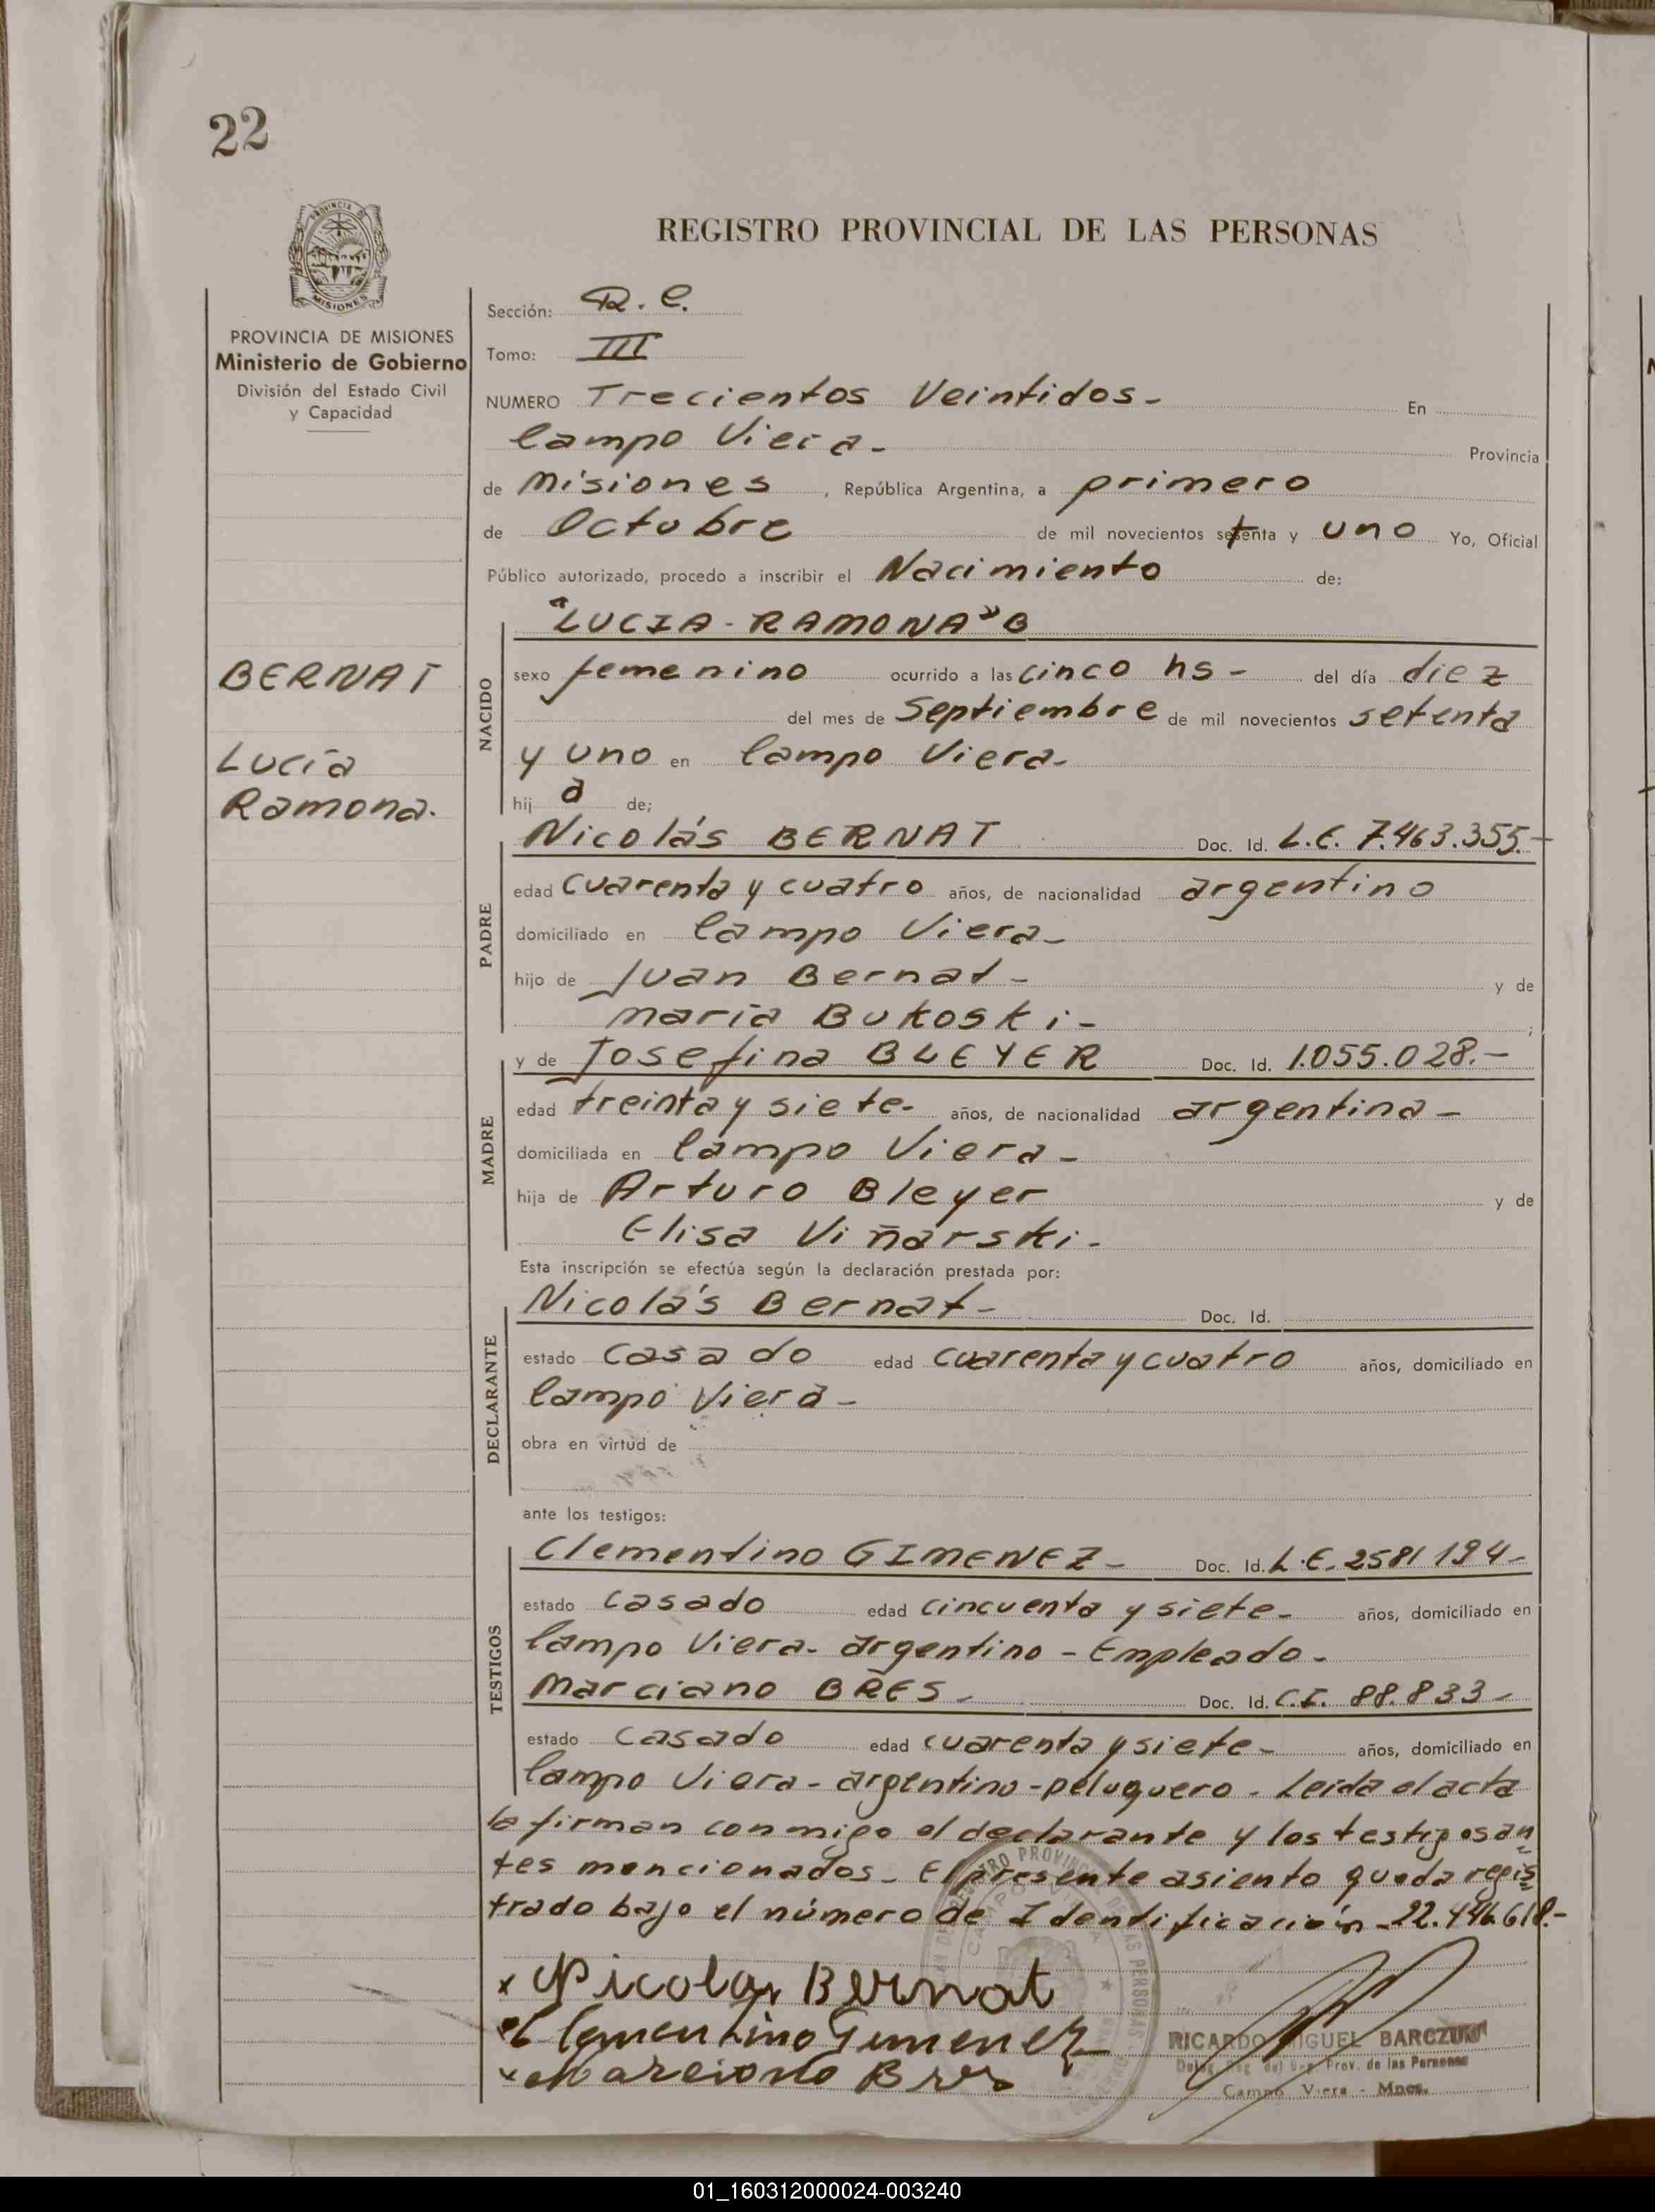 22
REGISTRO PROVINCIAL DE LAS PERSONAS
PROVINCIA DE
MISIONES
PROVINCIA DE MISIONES
Ministerio de Gobierno
División del Estado Civil
y Capacidad
BERNAT
Lucía
Ramona.
Sección: R.C.
Tomo: III
NUMERO Trecientos Veintidos- En
Campo Viera- Provincia
de Misiones, República Argentina, a primero
de Octubre de mil novecientos setenta y uno Yo, Oficial
Público autorizado, procedo a inscribir el Nacimiento de:
"LUCIA-RAMONA" B
NACIDO
sexo femenino ocurrido a las cinco hs- del día diez
del mes de Septiembre de mil novecientos setenta
y uno en Campo Viera-
hij a de;
Nicolás BERNAT Doc. Id. L.E. 7.463.355.-
PADRE
edad cuarenta y cuatro años, de nacionalidad argentino
domiciliado en Campo Viera-
hijo de Juan Bernat- y de
maría Bukoski- ;
y de Josefina BLEYER Doc. Id. 1.055.028.-
MADRE
edad treinta y siete- años, de nacionalidad argentina-
domiciliada en Campo Viera-
hija de Arturo Bleyer y de
Elisa Viñarski-
Esta inscripción se efectúa según la declaración prestada por:
Nicolás Bernat- Doc. Id.
DECLARANTE
estado casado edad cuarenta y cuatro años, domiciliado en
Campo Viera-
obra en virtud de
ante los testigos:
Clementino GIMENEZ- Doc. Id. L.E. 2581194-
TESTIGOS
estado casado edad cincuenta y siete- años, domiciliado en
Campo Viera- argentino - Empleado-
Marciano BRES- Doc. Id. C.I. 88.833-
estado casado edad cuarenta y siete- años, domiciliado en
Campo Viera- argentino-peluquero- Leida el acta
la firman conmigo el declarante y los testigos an
tes mencionados- El presente asiento queda regis
trado bajo el número de Identificación- 22.446.618.-
x Nicolas Bernat
x Clementino Gimenez
x Marciano Bres
RICARDO MIGUEL BARCZUK
Prov. de las Personas
Campo Viera - Mnes.
01_160312000024-003240